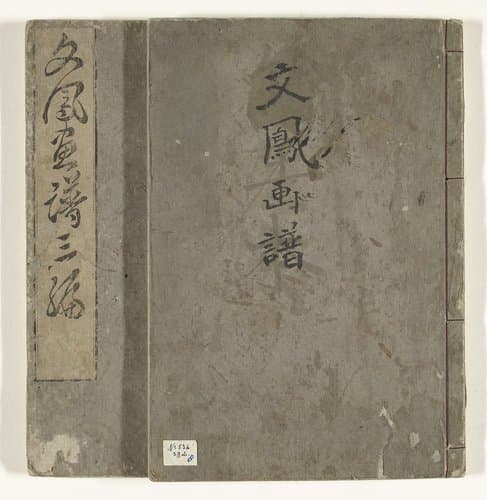 文鳳画譜三編
文鳳画譜